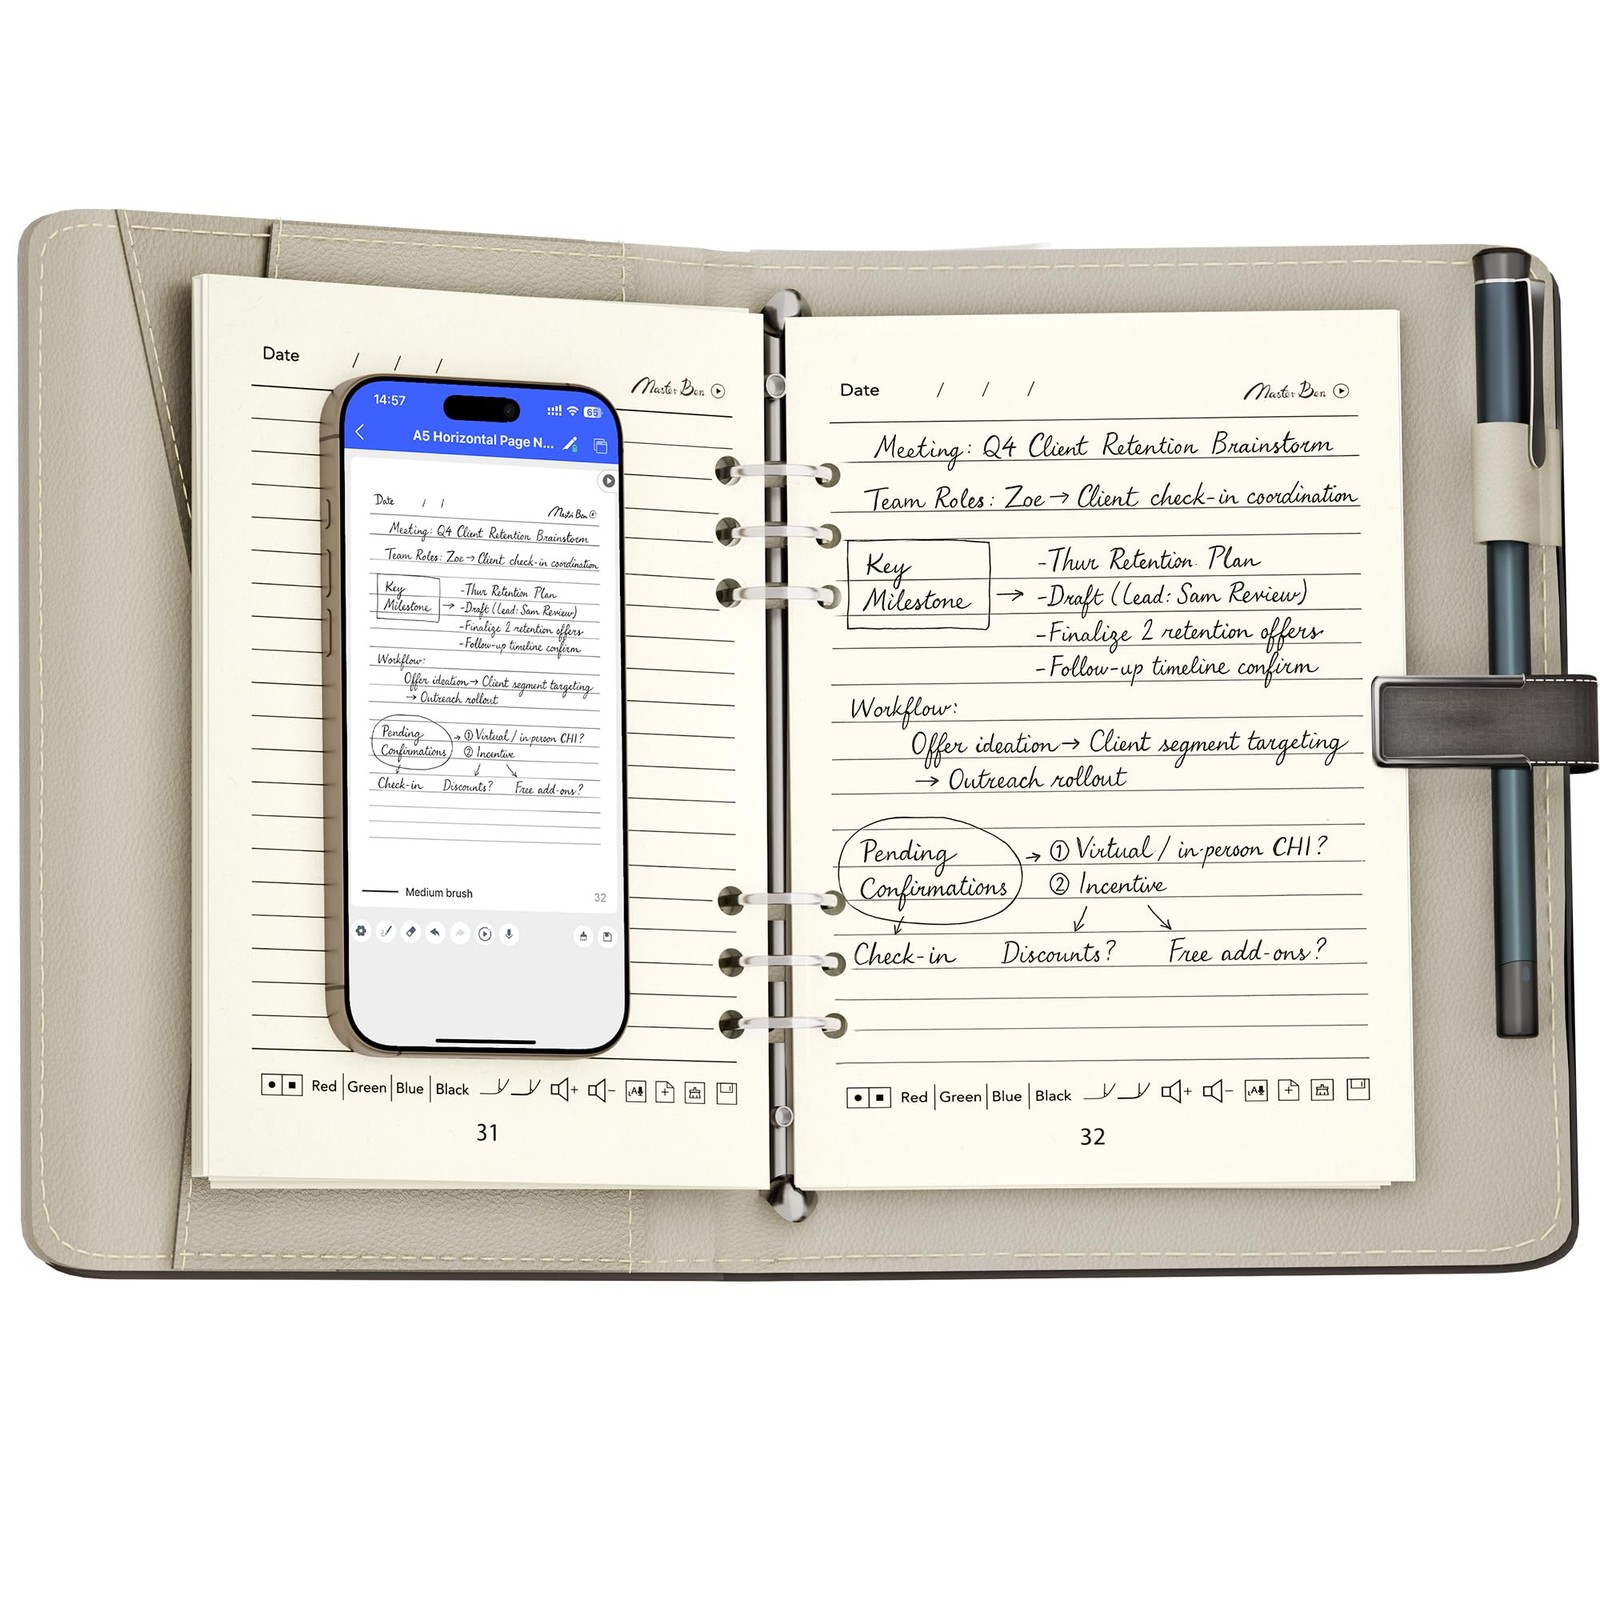 Date / / /
Master Ben
14:57
65
A5 Horizontal Page N...
Date / /
Master Ben
Meeting: Q4 Client Retention Brainstorm
Team Roles: Zoe → Client check-in coordination
Key
Milestone →
-Thur Retention Plan
-Draft (Lead: Sam Review)
-Finalize 2 retention offers
-Follow-up timeline confirm
Workflow:
Offer ideation → Client segment targeting
→ Outreach rollout
Pending
Confirmations
→ ① Virtual / in-person CHI?
② Incentive
Check-in Discounts? Free add-ons?
Medium brush 32
Red | Green | Blue | Black
31
Date / / /
Master Ben
Meeting: Q4 Client Retention Brainstorm
Team Roles: Zoe → Client check-in coordination
Key
Milestone →
-Thur Retention Plan
-Draft (Lead: Sam Review)
-Finalize 2 retention offers
-Follow-up timeline confirm
Workflow:
Offer ideation → Client segment targeting
→ Outreach rollout
Pending
Confirmations
→ ① Virtual / in-person CHI?
② Incentive
Check-in Discounts? Free add-ons?
Red | Green | Blue | Black
32